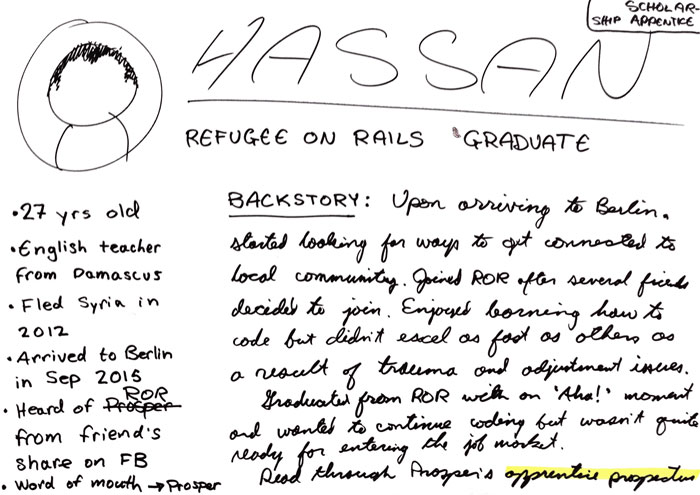 SCHOLAR-
SHIP APPRENTICE
HASSAN
REFUGEE ON RAILS GRADUATE
• 27 yrs old
• English teacher
from Damascus
• Fled Syria in
2012
• Arrived to Berlin
in Sep 2015
ROR
• Heard of Prosper
from friend's
share on FB
• Word of mouth → Prosper
BACKSTORY: Upon arriving to Berlin,
started looking for ways to get connected to
local community. Joined ROR after several friends
decided to join. Enjoyed learning how to
code but didn't excel as fast as others as
a result of trauma and adjustment issues.
Graduated from ROR with an 'Aha!' moment
and wanted to continue coding but wasn't quite
ready for entering the job market.
Read through Prosper's apprentice prospectus